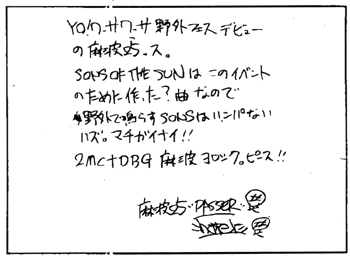 YO.ワーサワーサ野外フェスデビュー
の麻波25ース。
SONS OF THE SUNはこのイベント
のために作った?曲なので
野外で鳴らすSONSはハンパない
ハズ。マチガイナイ!!
2MC+DB9 麻波ヨロック。ピース!!
麻波25 PASSER